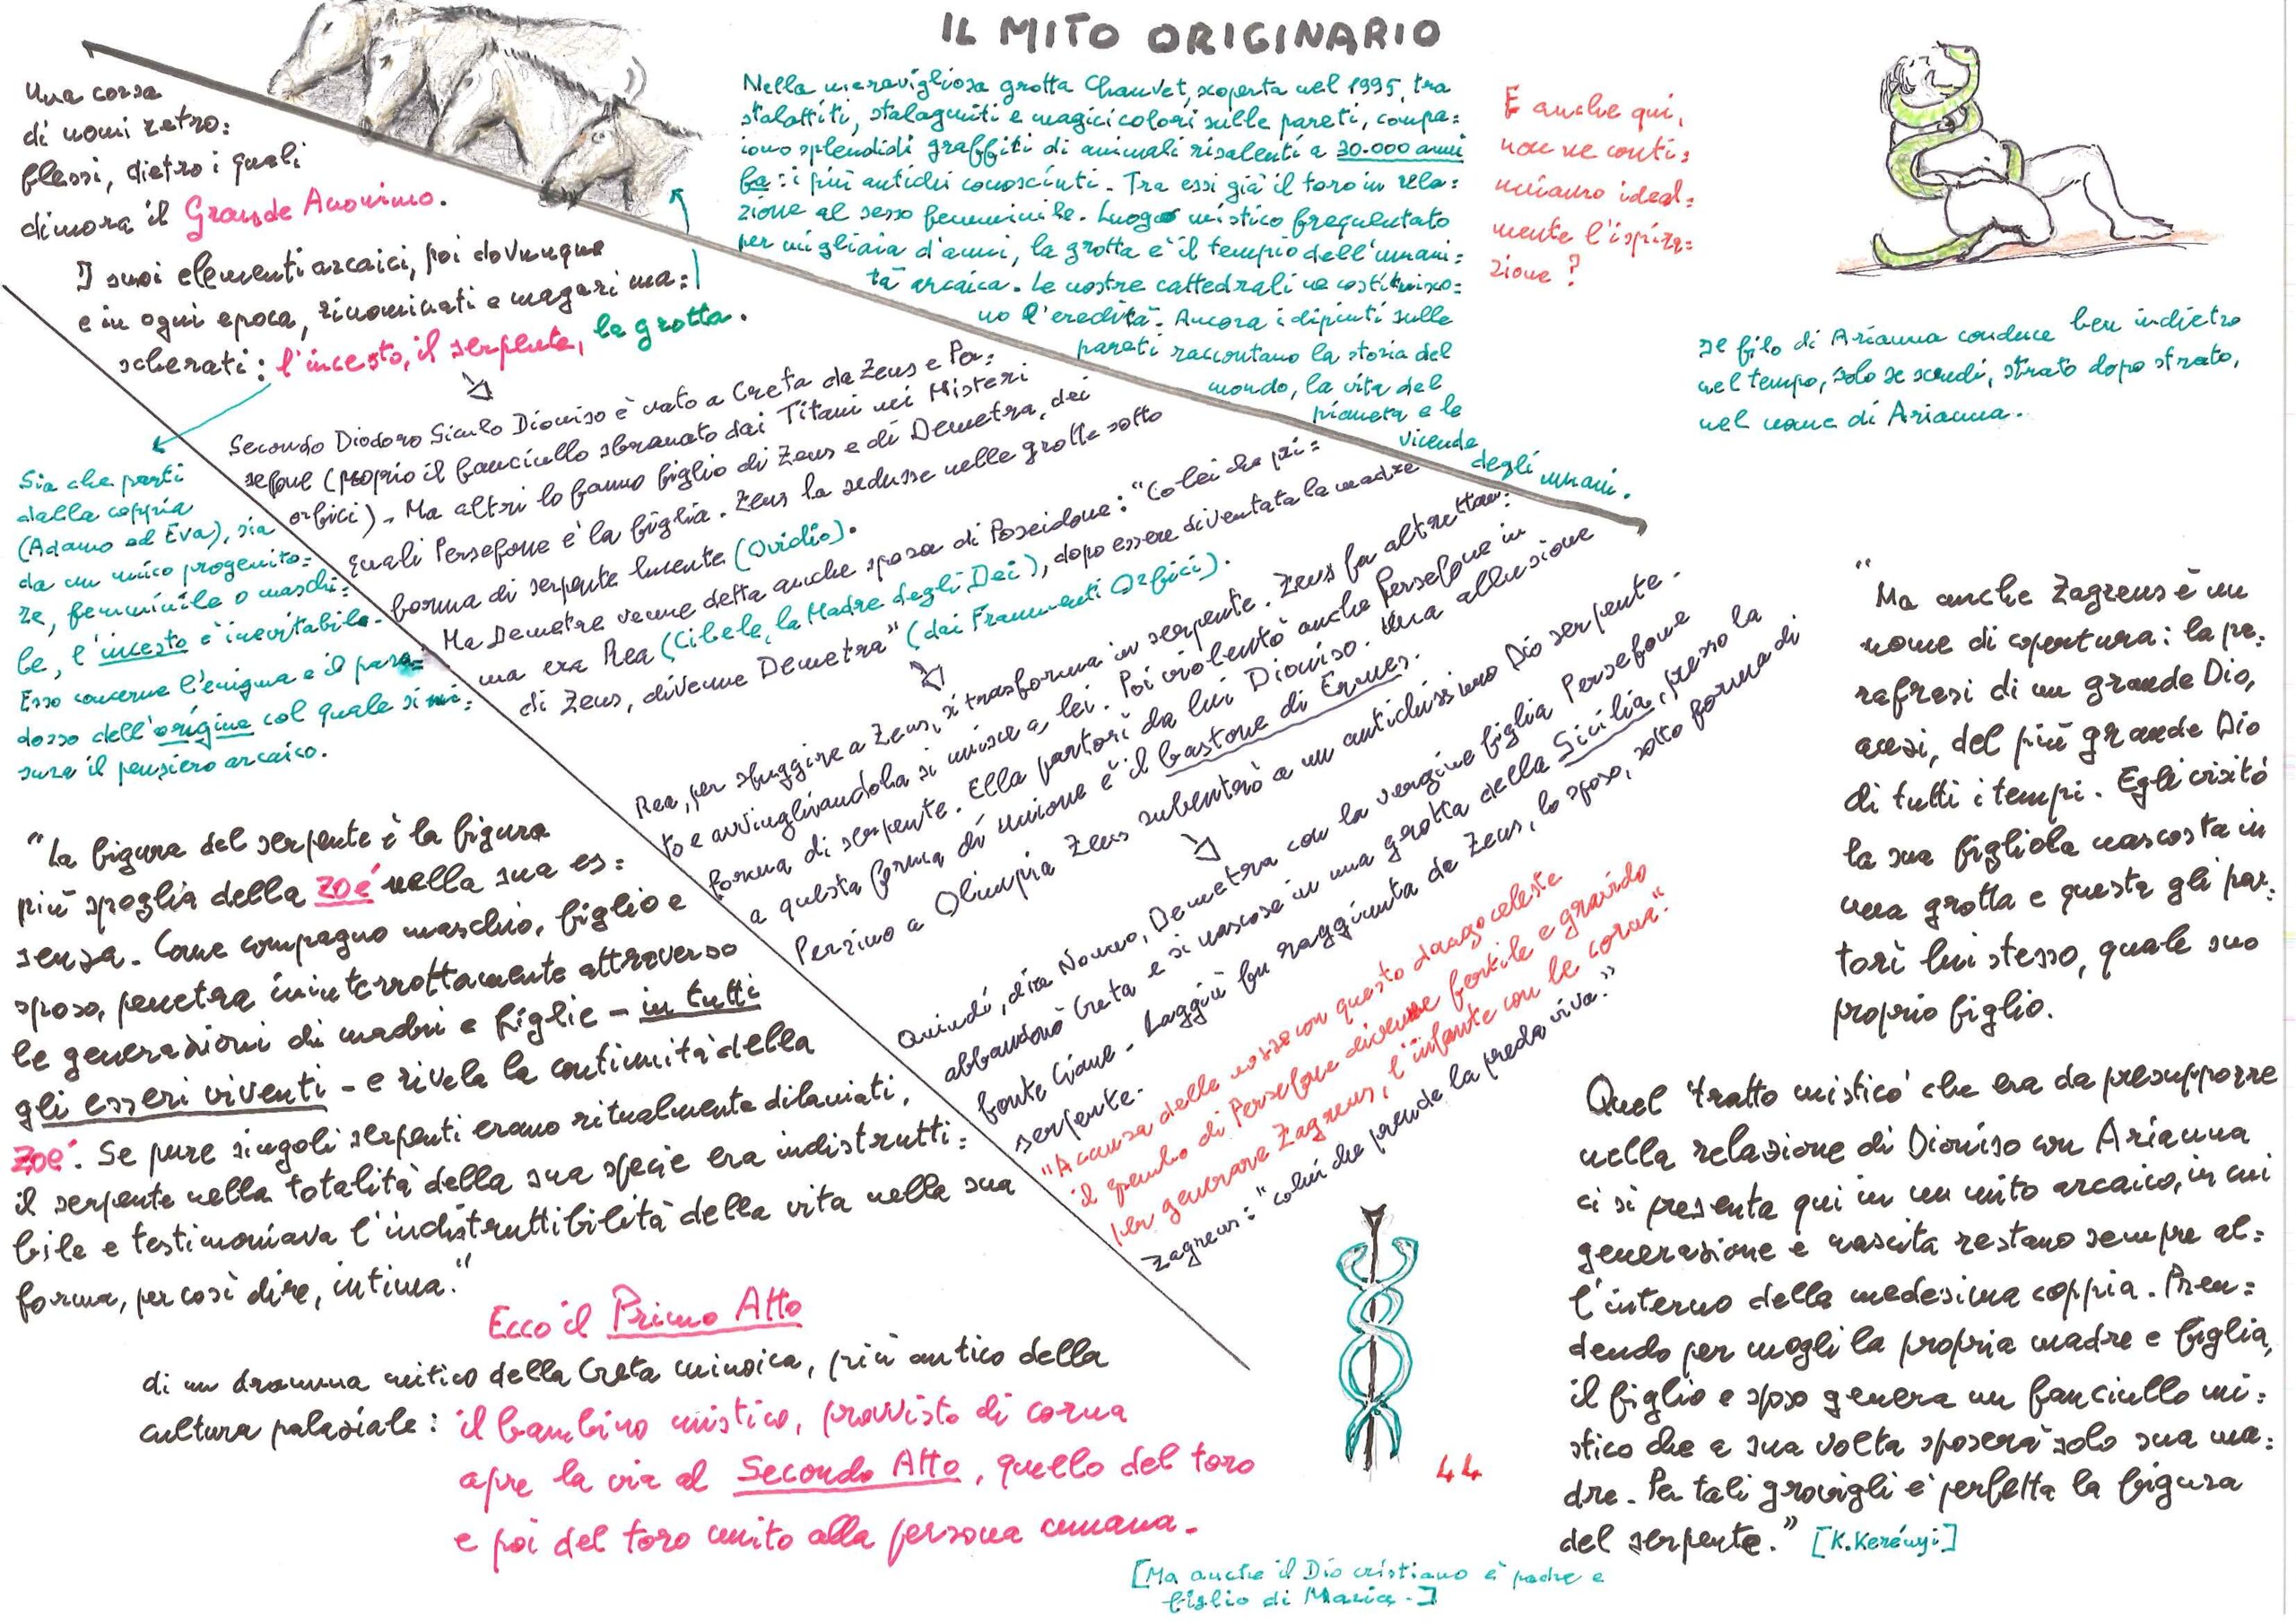 IL MITO ORIGINARIO
Una corsa
di nomi retro=
flessi, dietro i quali
dimora il Grande Anonimo.
I suoi elementi arcaici, poi dovunque
e in ogni epoca, rinominati e magari ma=
scherati: l'incesto, il serpente, la grotta.
Nella meravigliosa grotta Chauvet, scoperta nel 1995, tra
stalattiti, stalagmiti e magici colori sulle pareti, compa=
iono splendidi graffiti di animali risalenti a 30.000 anni
fa: i più antichi conosciuti. Tra essi già il toro in rela=
zione al sesso femminile. Luogo mistico frequentato
per migliaia d'anni, la grotta è il tempio dell'umani=
tà arcaica. Le nostre cattedrali ne costituisco=
no l'eredità. Ancora i dipinti sulle
pareti raccontano la storia del
mondo, la vita del
pianeta e le
vicende
degli umani.
E anche qui,
non ne conti=
nuiamo ideal=
mente l'ispira=
zione?
Se filo di Arianna conduce ben indietro
nel tempo, solo se scendi, strato dopo strato,
nel nome di Arianna.
Sia che parti
dalla coppia
(Adamo ed Eva), sia
da un unico progenito=
re, femminile o maschi=
le, l'incesto è inevitabile.
Esso concerne l'enigma e il para=
dosso dell'origine col quale si mi=
sura il pensiero arcaico.
Secondo Diodoro Siculo Dioniso è nato a Creta da Zeus e Per=
sefone (proprio il fanciullo sbranato dai Titani nei Misteri
orfici). Ma altri lo fanno figlio di Zeus e di Demetra, dei
quali Persefone è la figlia. Zeus la sedusse nelle grotte sotto
forma di serpente lucente (Ovidio).
Ma Demetra venne detta anche sposa di Poseidone: "Colei che pri=
ma era Rea (Cibele, la Madre degli Dei), dopo essere diventata la madre
di Zeus, divenne Demetra" (dai Frammenti Orfici).
Rea, per sfuggire a Zeus, si trasforma in serpente. Zeus fa altrettan=
to e avvinghiandola si unisce a lei. Poi violentò anche Persefone in
forma di serpente. Ella partorì da lui Dioniso. Una allusione
a questa forma di unione è il bastone di Ermes.
Perzino a Olimpia Zeus subentrò a un antichissimo Dio serpente.
Quindi, dice Nonno, Demetra con la vergine figlia Persefone
abbandonò Creta e si nascose in una grotta della Sicilia, presso la
fonte Ciane. Laggiù fu raggiunta da Zeus, lo sposo, sotto forma di
serpente.
"A causa delle nozze con questo drago celeste
il grembo di Persefone divenne fertile e gravido
per generare Zagreus, l'infante con le corna."
Zagreus: "colui che prende la preda viva."
"La figura del serpente è la figura
più spoglia della zoé nella sua es=
senza. Come compagno maschio, figlio e
sposo, penetra ininterrottamente attraverso
le generazioni di madri e figlie – in tutti
gli esseri viventi – e rivela la continuità della
zoé. Se pure singoli serpenti erano ritualmente dilaniati,
il serpente nella totalità della sua specie era indistrutti=
bile e testimoniava l'indistruttibilità della vita nella sua
forma, per così dire, intima."
Ecco il Primo Atto
di un dramma mitico della Creta minoica, più antico della
cultura palaziale: il bambino mistico, provvisto di corna
apre la via al Secondo Atto, quello del toro
e poi del toro unito alla persona umana.
44
"Ma anche Zagreus è un
nome di copertura: la pe=
rafrasi di un grande Dio,
anzi, del più grande Dio
di tutti i tempi. Egli visitò
la sua figliola nascosta in
una grotta e questa gli par=
torì lui stesso, quale suo
proprio figlio.
Quel 'tratto mistico' che era da presupporre
nella relazione di Dioniso con Arianna
ci si presenta qui in un mito arcaico, in cui
generazione e nascita restano sempre al=
l'interno della medesima coppia. Pren=
dendo per mogli la propria madre e figlia,
il figlio e sposo genera un fanciullo mi=
stico che a sua volta sposerà solo sua ma=
dre. Per tali grovigli è perfetta la figura
del serpente." [K.Kerényi]
[Ma anche il Dio cristiano è padre e
figlio di Maria.]